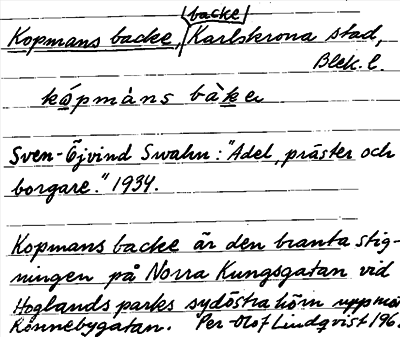 backe
Kopmans backe, Karlskrona stad,
Blek. l.
kópmàns bàke
Sven-Öjvind Swahn: "Adel, präster och
borgare." 1934.
Kopmans backe är den branta stig-
ningen på Norra Kungsgatan vid
Hoglands parks sydöstra hörn uppmot
Ronnebygatan. Per-Olof Lindqvist 196